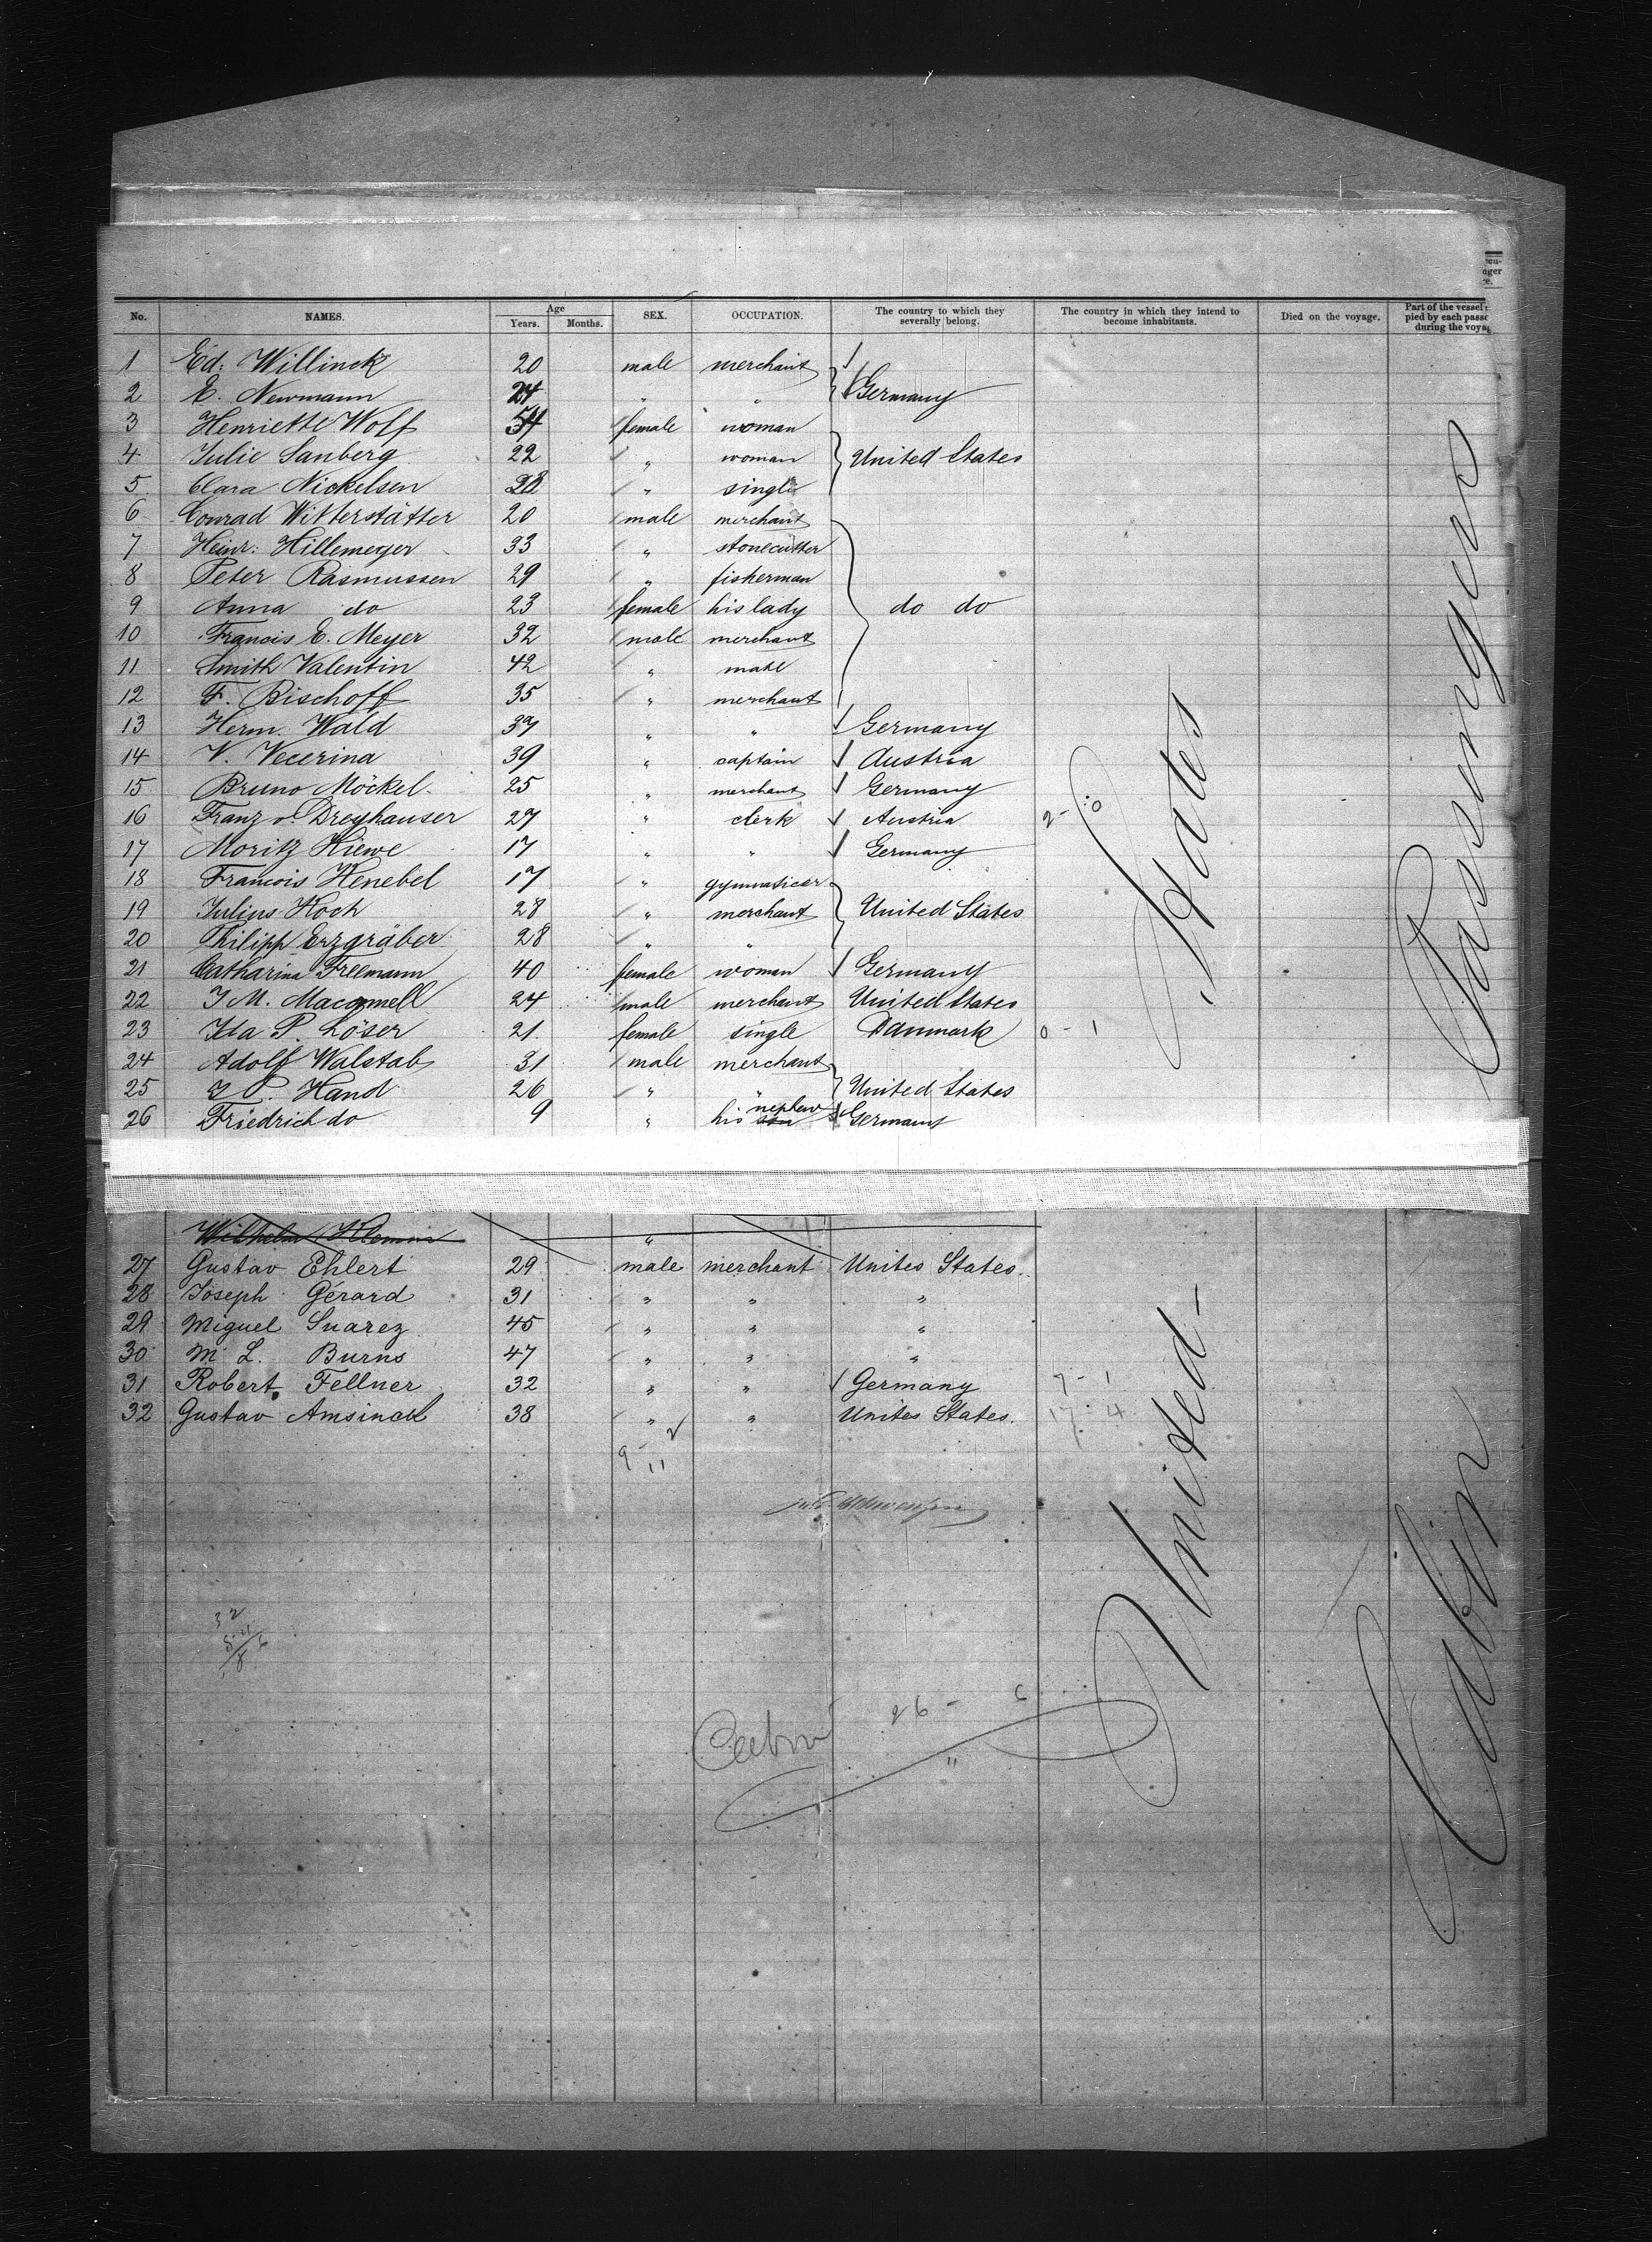 No. NAMES. Age Years. Months. SEX. OCCUPATION. The country to which they severally belong. The country in which they intend to become inhabitants. Died on the voyage. Part of the vessel pied by each during the
1 Ed: Willinck 20 male merchant
2 E. Newmann 24 " " Germany
3 Henriette Wolf 54 female woman
4 Julie Sanberg 22 " woman United States
5 Clara Nickelsen " single
6 Conrad Witterstätter 20 male merchant
7 Heinr: Hillemeyer 33 " stonecutter
8 Peter Rasmussen 29 " fisherman
9 Anna do 23 female his lady do do
10 Francis E. Meyer 32 male merchant
11 Smith Valentin 42 " mate
12 F. Bischoff 35 " merchant
13 Herm. Wald 37 " " Germany
14 V. Vecerina 39 " captain Austria
15 Bruno Möckel 25 " merchant Germany
16 Franz v. Dreyhauser 27 " clerk Austria 2-0
17 Moritz Kiewe 17 " " Germany
18 Francois Henebel 17 " gymnasticer
19 Julius Koch 28 " merchant United States
20 Philipp Erzgräber 28 " "
21 Catharina Freemann 40 female woman Germany
22 J M. Maconnell 24 male merchant United States
23 Ida P. Löser 21 female single Danmark 0-1
24 Adolf Walstab 31 male merchant
25 J P. Hand 26 " " United States
26 Friedrich do 9 " his son nephew Germany
Wilhelm "
27 Gustav Ehlert 29 male merchant Unites States.
28 Joseph Gérard 31 " " "
29 Miguel Suarez 45 " " "
30 M L. Burns 47 " " "
31 Robert Fellner 32 " " Germany 7-1
32 Gustav Amsinck 38 " " Unites States. 17-4
9-2
11
32
Cabin 26-6
"
United-States
Cabin Passengers